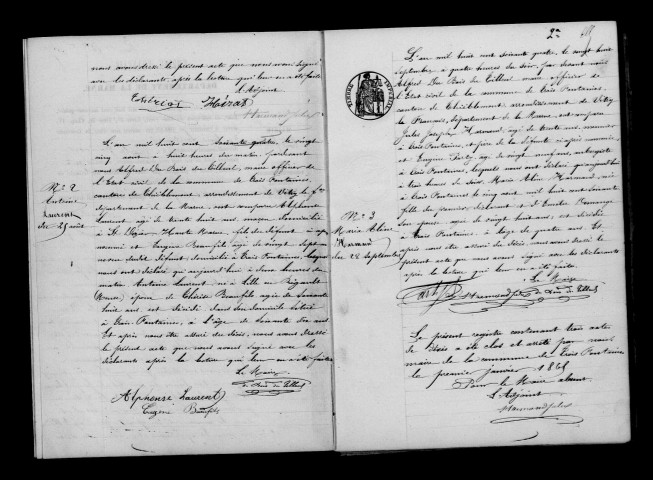 nous avons dressé le présent acte que nous avons signé
avec les déclarants après la lecture qui leur en a été faite
L'Adjoint
L'an mil huit cent soixante quatre, le vingt
cinq août à huit heures du matin, pardevant
nous Alfred Du Bois du Tilleul, maire officier de
l'Etat civil de la commune de Trois Fontaines,
canton de Thiéblemont, arrondissement de Vitry le f.ois
département de la Marne est comparu Alphonse
Laurent âgé de trente huit ans, maçon domicilié
à St Dizier Haute Marne, fils du défunt
et Eugène Beaufils âgé de vingt sept ans
neveu dudit défunt domicilié à Trois Fontaines, lesquels
nous ont déclaré qu'aujourd'hui à deux heures du
matin Antoine Laurent né à
époux de Thérèse Beaufils âgée de soixante
huit ans, est décédé dans son domicile situé
à Trois Fontaines, à l'âge de soixante dix ans
Et après nous être assuré du décès, nous avons dressé
le présent acte que nous avons signé avec les
déclarants après la lecture qui leur en a été faite.
Le Maire
A. Du Bois du Tilleul
Alphonse Laurent
Eugène Beaufils
N° 2
Antoine
Laurent
du 25 août
2e
L'an mil huit cent soixante quatre, le vingt huit
septembre à quatre heures du soir, par devant nous
Alfred Du Bois du Tilleul maire officier de
l'Etat civil de la commune de Trois Fontaines,
canton de Thiéblemont arrondissement de Vitry
le François, département de la Marne, ont comparu
Jules Joseph Harmand, âgé de trente ans,
à Trois Fontaines, et père de la défunte ci après nommée
et Eugène Petit, âgé de vingt neuf ans, aubergiste
à Trois Fontaines, lesquels nous ont déclaré qu'aujourd'hui
à trois heures du soir, Marie Aline Harmand, née
à Trois Fontaines le cinq mai mil huit cent soixante
fille du premier déclarant et d'
son épouse âgée de vingt huit ans, est décédée
à Trois Fontaines, à l'âge de quatre ans. Et
après nous être assuré du décès, nous avons dressé le
présent acte que nous avons signé avec les déclarants
après la lecture qui leur en a été faite.
Le Maire
A. Du Bois du Tilleul
N° 3
Marie Aline
Harmand
du 28 septembre
Le présent registre contenant trois actes
de décès a été clos et arrêté par nous
maire de la commune de Trois Fontaines
le premier janvier 1865
Pour le Maire absent
L'Adjoint